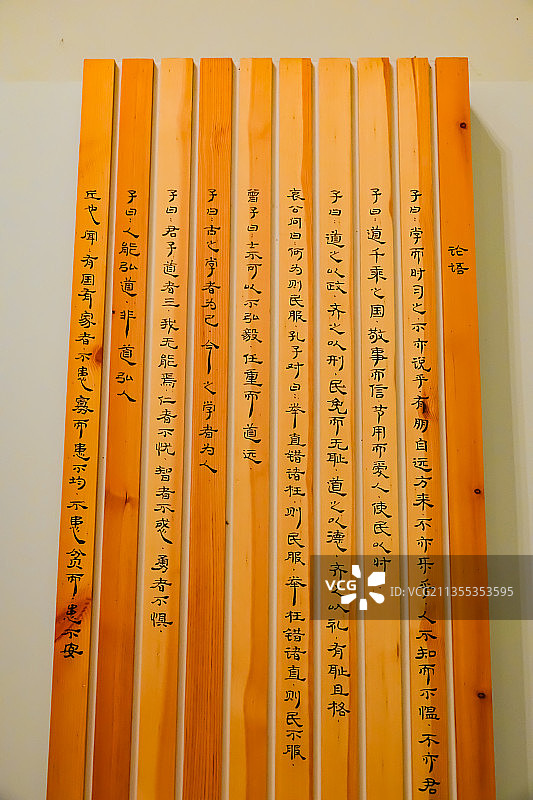 论语
子曰：学而时习之·不亦说乎·有朋自远方来·不亦乐乎·人不知而不愠·不亦君
子曰：道千乘之国·敬事而信·节用而爱人·使民以时
子曰：道之以政·齐之以刑·民免而无耻·道之以德·齐之以礼·有耻且格·
哀公问曰：何为则民服·孔子对曰：举直错诸枉·则民服·举枉错诸直·则民不服·
曾子曰：士不可以不弘毅·任重而道远·
子曰：古之学者为己·今之学者为人
子曰：君子道者三·我无能焉·仁者不忧·智者不惑·勇者不惧·
子曰：人能弘道·非道弘人
丘也闻·有国有家者·不患寡而患不均·不患贫而患不安
VCG
视觉中国
VCG211355353595